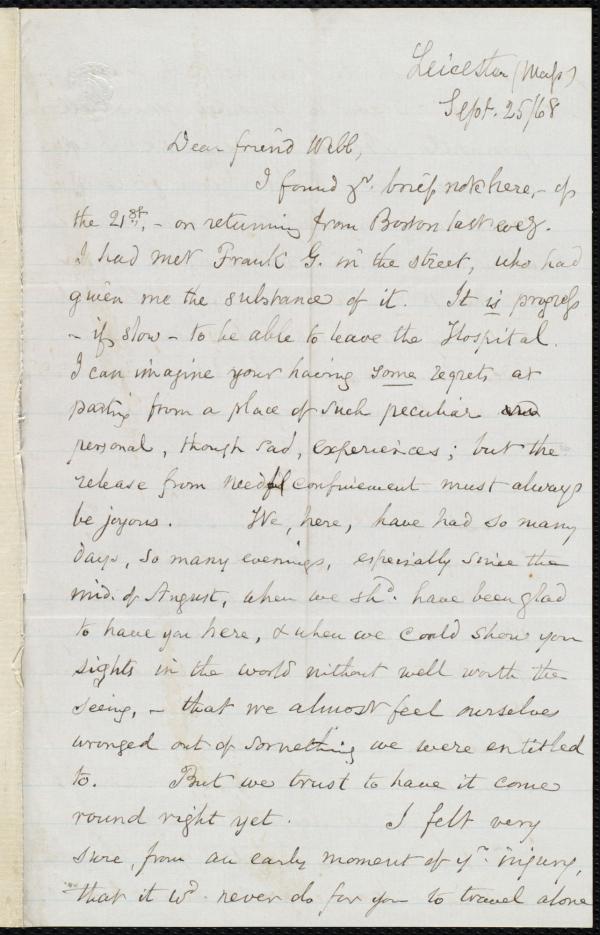 Leicester (Mass)
Sept. 25/68
Dear friend Webb,
I found yr. brief note here, – of
the 21st, – on returning from Boston last eveg.
I had met Frank G. in the street, who had
given me the substance of it. It is progress
– if slow – to be able to leave the Hospital.
I can imagine your having some regrets at
parting from a place of such peculiar and
personal, though sad, experiences; but the
release from needful confinement must always
be joyous. We, here, have had so many
days, so many evenings, especially since the
mid. of August, when we shd. have been glad
to have you here, & when we could show you
sights in the world without well worth the
seeing, – that we almost feel ourselves
wronged out of something we were entitled
to. But we trust to have it come
round right yet. I felt very
sure, from an early moment of yr. injury,
that it wd. never do for you to travel alone